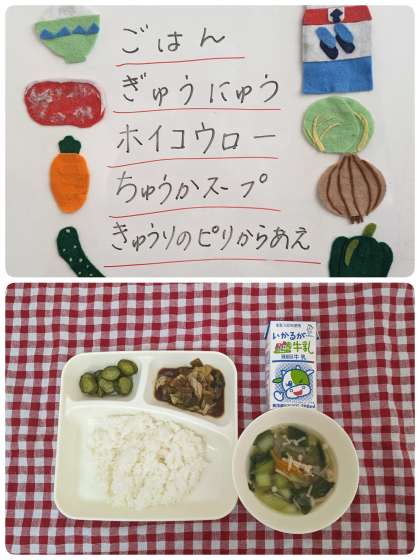 ごはん
ぎゅうにゅう
ホイコウロー
ちゅうかスープ
きゅうりのピリからあえ
いかるが
牛乳